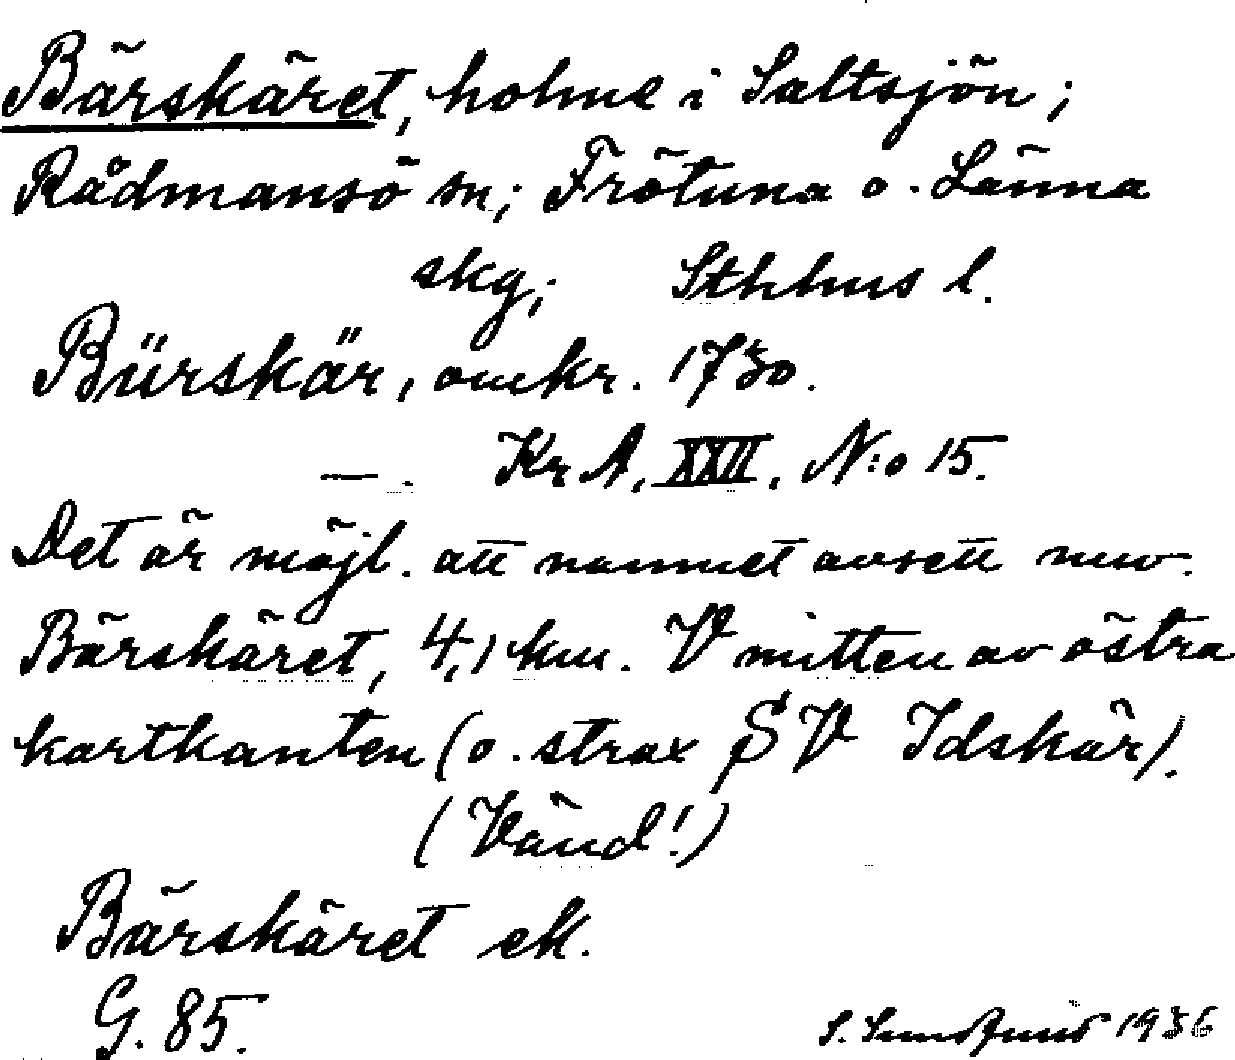 Bärskäret, holme i Saltsjön;
Rådmansö sn; Frötuna o. Länna
skg; Sthhus l.
Bürskär, omkr. 1730.
—. Kr A, XXII, N:o 15.
Det är möjl. att namnet avsett nuv.
Bärskäret, 4,1 km. V mitten av östra
kartkanten (o. strax SV Idskär).
(Vänd!)
Bärskäret ek.
G. 85.
S. 1936